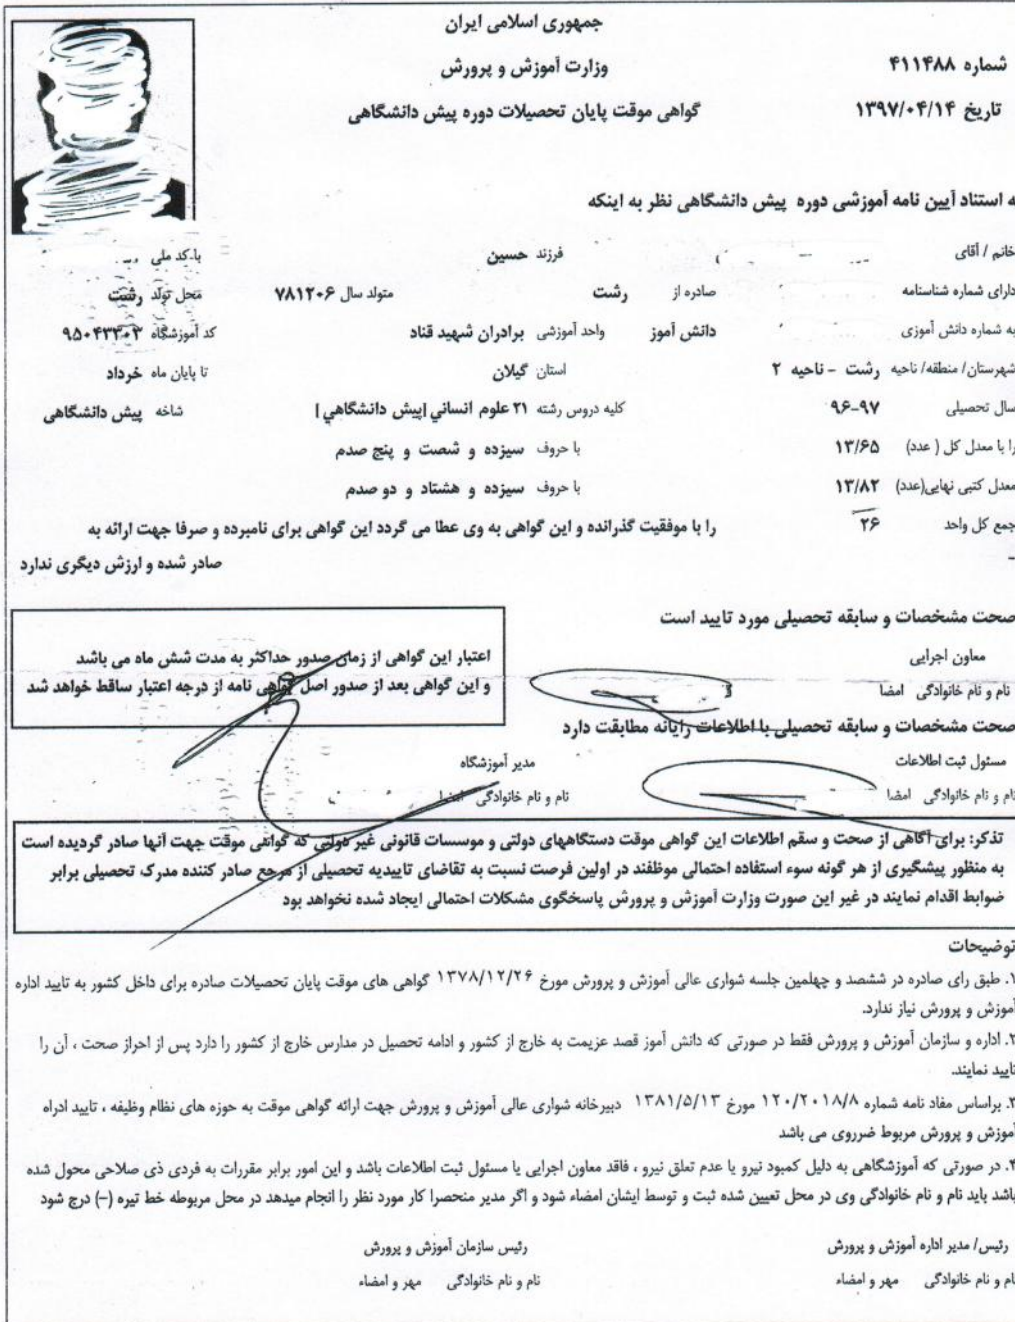 جمهوری اسلامی ایران
وزارت آموزش و پرورش
شماره ۴۱۱۴۸۸
گواهی موقت پایان تحصیلات دوره پیش دانشگاهی
تاریخ ۱۳۹۷/۰۴/۱۴
ه استناد آیین نامه آموزشی دوره پیش دانشگاهی نظر به اینکه
خانم / آقای فرزند حسین با کد ملی
دارای شماره شناسنامه صادره از رشت متولد سال ۷۸۱۲۰۶ محل تولد رشت
به شماره دانش آموزی دانش آموز واحد آموزشی برادران شهید قناد کد آموزشگاه ۹۵۰۴۳۴۰۳
شهرستان/ منطقه/ ناحیه رشت - ناحیه ۲ استان گیلان تا پایان ماه خرداد
سال تحصیلی ۹۶-۹۷ کلیه دروس رشته ۲۱ علوم انساني [پیش دانشگاهي] شاخه پیش دانشگاهی
را با معدل کل ( عدد) ۱۳/۶۵ با حروف سیزده و شصت و پنج صدم
معدل کتبی نهایی(عدد) ۱۳/۸۲ با حروف سیزده و هشتاد و دو صدم
جمع کل واحد ۲۶ را با موفقیت گذرانده و این گواهی به وی عطا می گردد این گواهی برای نامبرده و صرفا جهت ارائه به
– صادر شده و ارزش دیگری ندارد
صحت مشخصات و سابقه تحصیلی مورد تایید است
معاون اجرایی
نام و نام خانوادگی امضا
اعتبار این گواهی از زمان صدور حداکثر به مدت شش ماه می باشد
و این گواهی بعد از صدور اصل گواهی نامه از درجه اعتبار ساقط خواهد شد
صحت مشخصات و سابقه تحصیلی با اطلاعات رایانه مطابقت دارد
مسئول ثبت اطلاعات مدیر آموزشگاه
نام و نام خانوادگی امضا نام و نام خانوادگی امضا
تذکر: برای آگاهی از صحت و سقم اطلاعات این گواهی موقت دستگاههای دولتی و موسسات قانونی غیر دولتی که گواهی موقت جهت آنها صادر گردیده است
به منظور پیشگیری از هر گونه سوء استفاده احتمالی موظفند در اولین فرصت نسبت به تقاضای تاییدیه تحصیلی از مرجع صادر کننده مدرک تحصیلی برابر
ضوابط اقدام نمایند در غیر این صورت وزارت آموزش و پرورش پاسخگوی مشکلات احتمالی ایجاد شده نخواهد بود
توضیحات
۱. طبق رای صادره در ششصد و چهلمین جلسه شواری عالی آموزش و پرورش مورخ ۱۳۷۸/۱۲/۲۶ گواهی های موقت پایان تحصیلات صادره برای داخل کشور به تایید اداره
آموزش و پرورش نیاز ندارد.
۲. اداره و سازمان آموزش و پرورش فقط در صورتی که دانش آموز قصد عزیمت به خارج از کشور و ادامه تحصیل در مدارس خارج از کشور را دارد پس از احراز صحت ، آن را
تایید نمایند.
۳. براساس مفاد نامه شماره ۱۲۰/۲۰۱۸/۸ مورخ ۱۳۸۱/۵/۱۳ دبیرخانه شواری عالی آموزش و پرورش جهت ارائه گواهی موقت به حوزه های نظام وظیفه ، تایید ادراه
آموزش و پرورش مربوط ضرروی می باشد
۴. در صورتی که آموزشگاهی به دلیل کمبود نیرو یا عدم تعلق نیرو ، فاقد معاون اجرایی یا مسئول ثبت اطلاعات باشد و این امور برابر مقررات به فردی ذی صلاحی محول شده
باشد باید نام و نام خانوادگی وی در محل تعیین شده ثبت و توسط ایشان امضاء شود و اگر مدیر منحصرا کار مورد نظر را انجام میدهد در محل مربوطه خط تیره (–) درج شود
رئیس/ مدیر اداره آموزش و پرورش رئیس سازمان آموزش و پرورش
نام و نام خانوادگی مهر و امضاء نام و نام خانوادگی مهر و امضاء